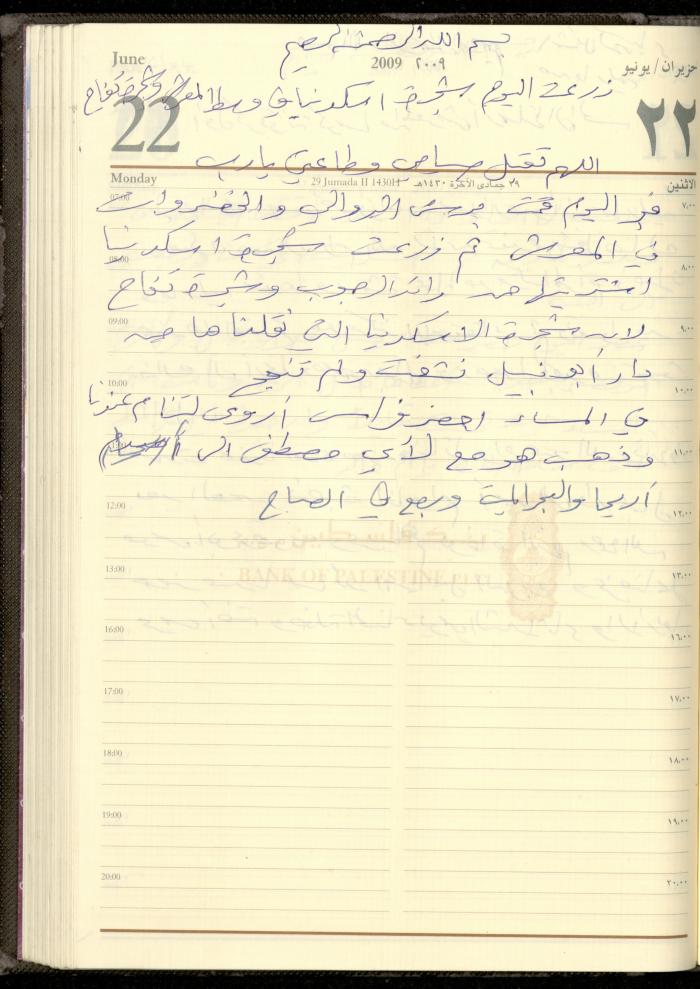 بسم الله الرحمن الرحيم
June
2009 ٢٠٠٩
حزيران / يونيو
زرعت اليوم شجرة اسكدنيا في وسط المعرش وشجرة تفاح
22
٢٢
اللهم تقبل صيامي وطاعتي يارب
Monday
29 Jumada II 1430H
٢٩ جمادى الآخرة ١٤٣٠هـ
الاثنين
07:00 ٧,٠٠
في اليوم قمت برش الدوالي والخضروات
في المعرش ثم زرعت شجرة اسكدنيا
08:00 ٨,٠٠
اشتريتها من رائد الرجوب وشجرة تفاح
09:00 ٩,٠٠
لان شجرة الاسكدنيا التي نقلناها من
دار أبو نبيل نشفت ولم تنجح
10:00 ١٠,٠٠
في المساء احضر فراس أروى لتنام عندنا
11:00 ١١,٠٠
وذهب هو مع لؤي مصطفى الى
أريحا والجرايات ورجع في الصباح
12:00 ١٢,٠٠
بنك فلسطين
BANK OF PALESTINE PLC
13:00 ١٣,٠٠
16:00 ١٦,٠٠
17:00 ١٧,٠٠
18:00 ١٨,٠٠
19:00 ١٩,٠٠
20:00 ٢٠,٠٠